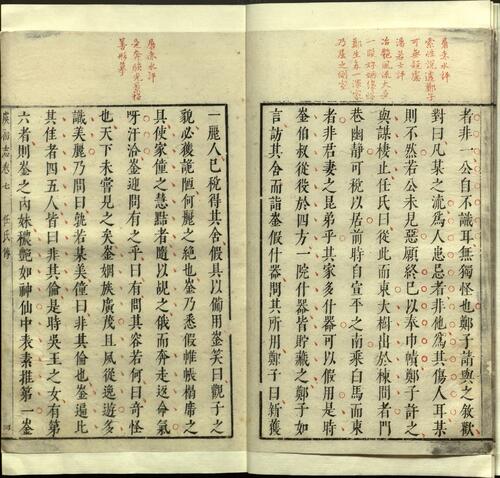 屠赤水評
索性說透鄭子
可無疑慮
湯若士評
冶艷風流大
一段好姻緣
鄭生真一漂
乃屋之側室
者非一公自不識耳無獨怪也鄭子請與之敘歡
對曰凡某之流為人患忌者非他為其傷人耳某
則不然若公未見惡願終己以奉巾幘鄭子許之
與謀棲止任氏曰從此而東大樹出於棟間者門
巷幽靜可稅以居前時自宣平之南乘白馬而東
者非君妻之昆弟乎其家多什器可以假用是時
崟伯叔從役於四方一院什器皆貯藏之鄭子如
言訪其舍而詣崟假什器問其所用鄭子曰新獲
屠赤水評
是奔候光景極
善形摹
一麗人已稅得其舍假具以備用崟笑曰觀子之
貌必獲詭陋何麗之絕也崟乃悉假帷帳榻席之
具使家僮之慧黠者隨以覘之俄而奔走返命氣
吁汗洽崟迎問有之乎曰有問其容若何曰奇怪
也天下未嘗見之矣崟姻族廣茂且夙從逸遊多
識美麗乃問曰孰若某美僮曰非其倫也崟遍比
其佳者四五人皆曰非其倫是時吳王之女有第
六者則崟之內妹穠艷如神仙中表素推第一崟
廣初志 卷七 任氏傳